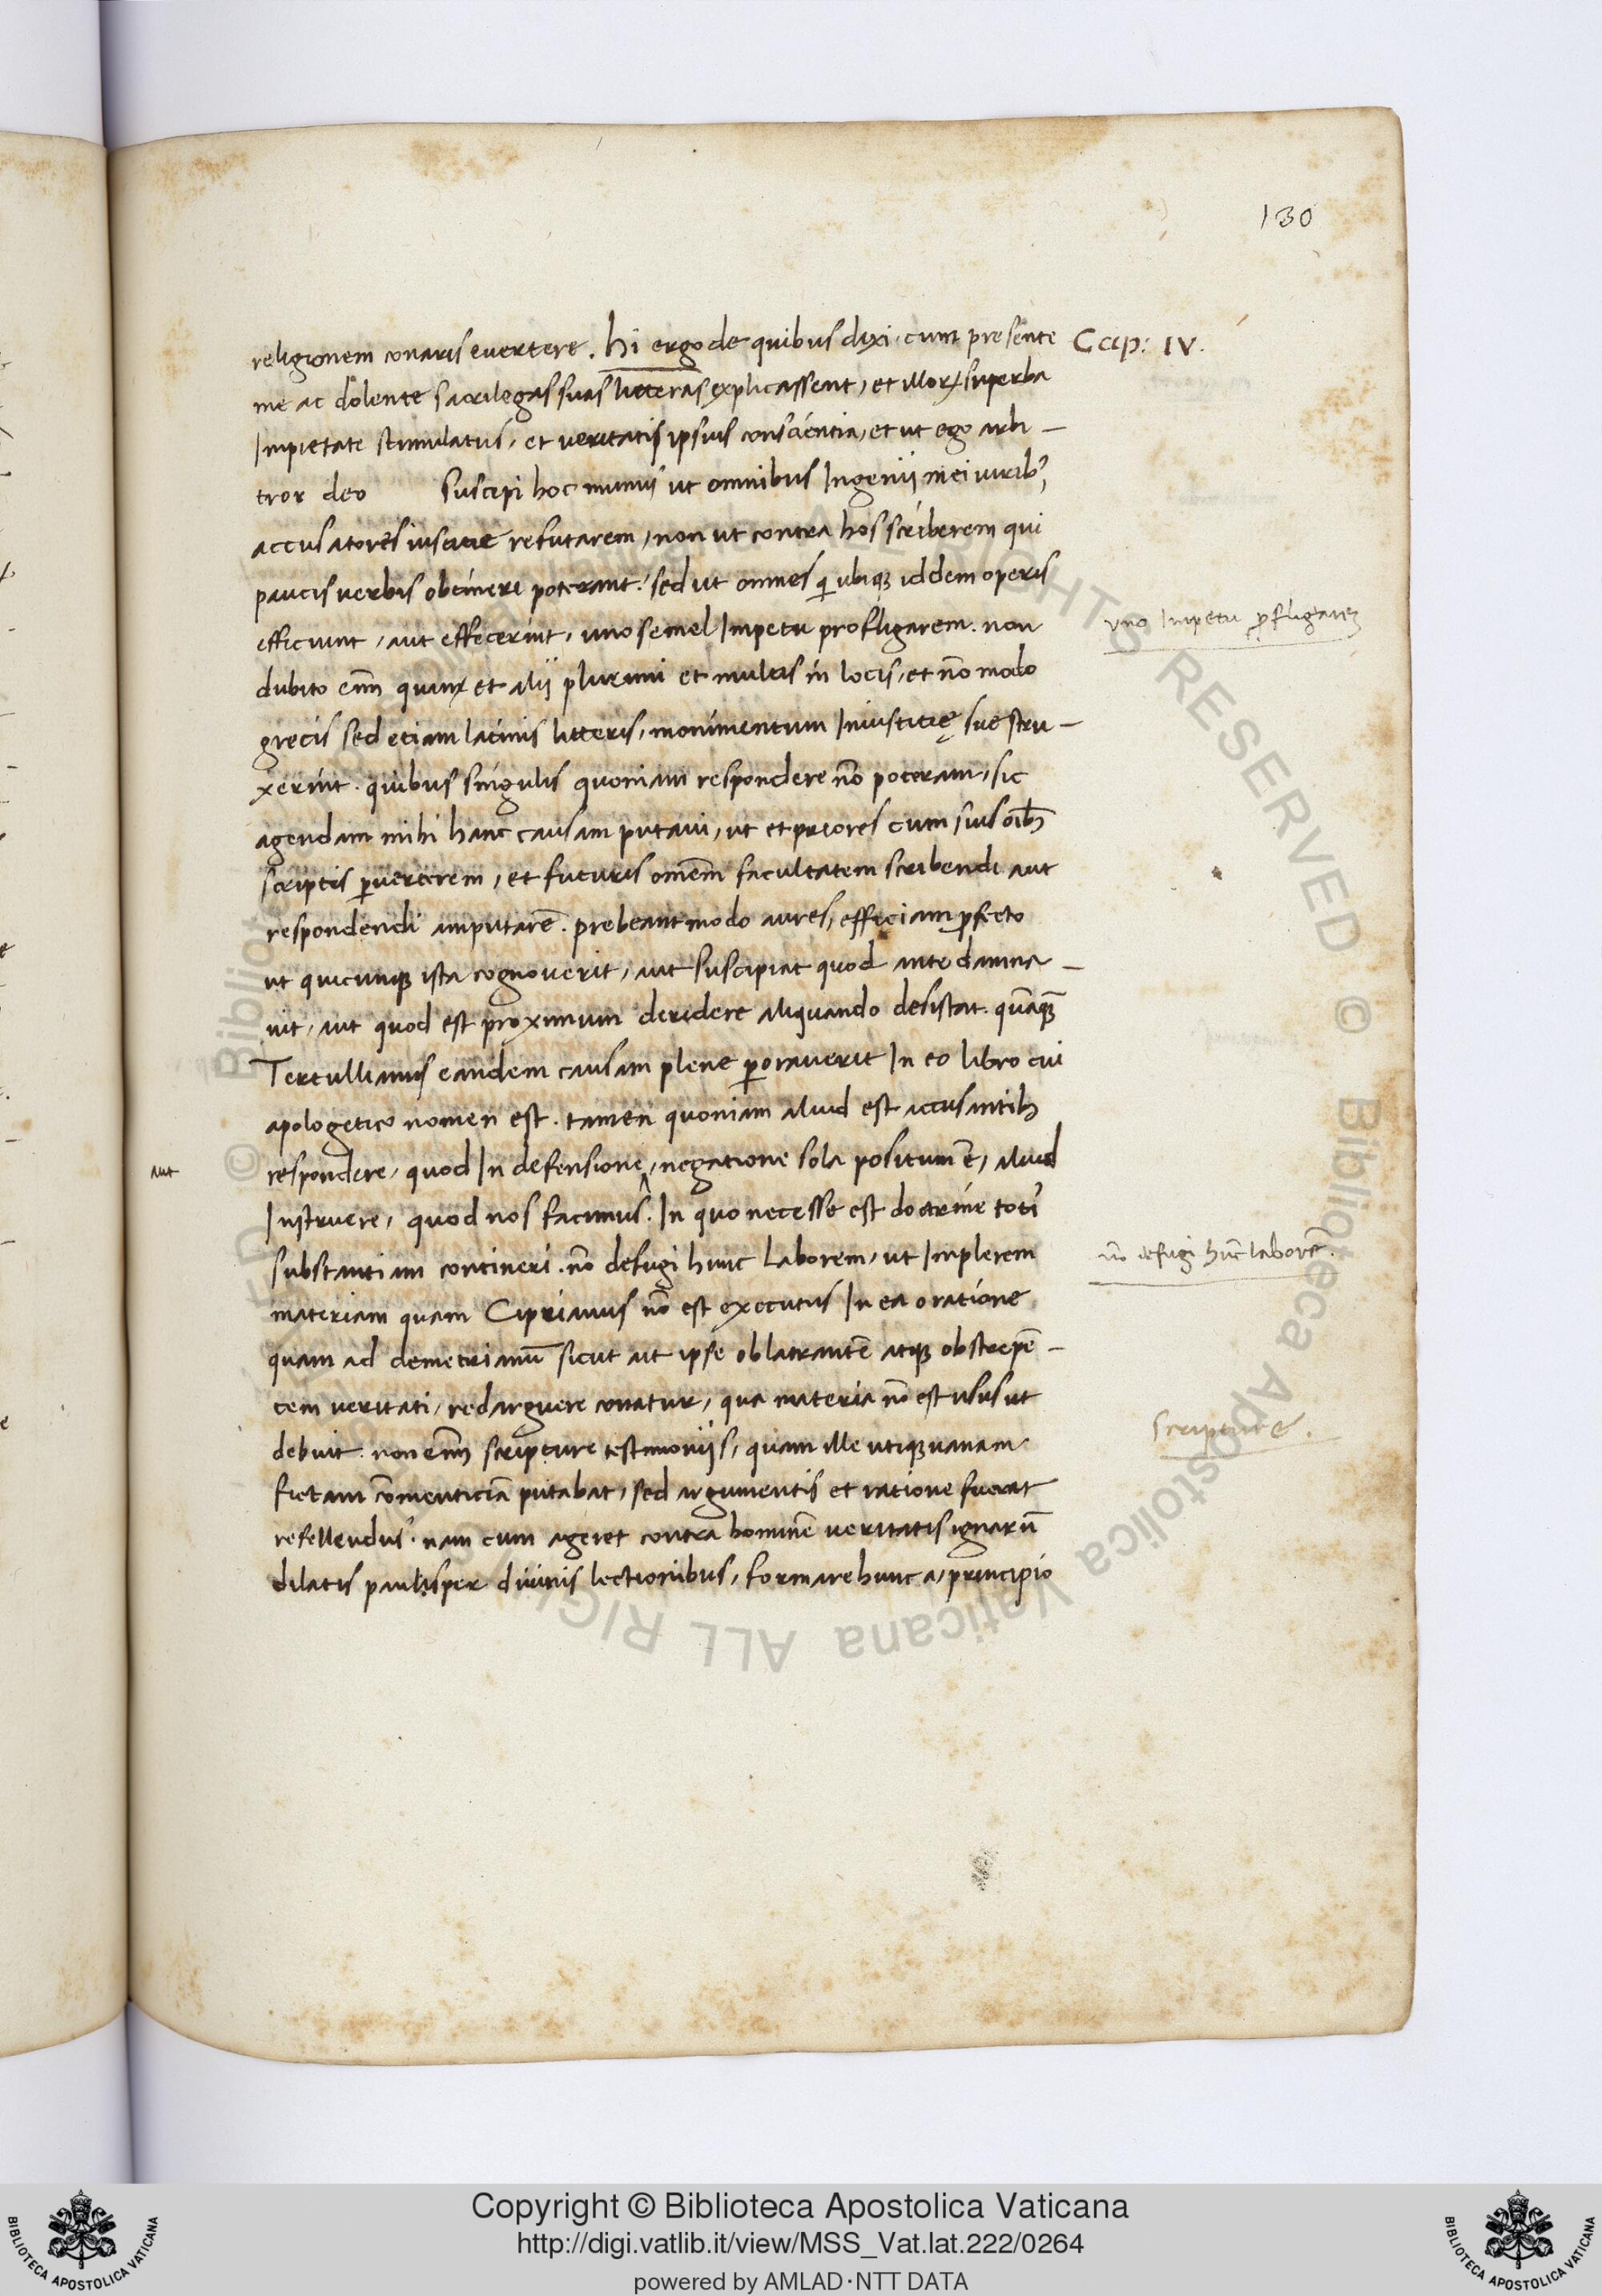 130
religionem conaris evertere. hi ergo de quibus dixi, cum presente Cap: IV.
me ac dolente sacrilegas suas litteras explicassent, et illorꝝ superba
Impietate stimulatus, et veritatis ipsius conscientia, et ut ego arbi-
tror deo suscepi hoc munus ut omnibus Ingenii mei virib⁹
accusatores iusticie refutarem, non ut contra hos scriberem qui
paucis verbis obtineri poterant. sed ut omnes qi ubiqꝫ iddem operis
efficiunt, aut effecerint, uno semel Impetu profligarem. non
uno Impetu ꝓfligarem
dubito enī quin et alii plurimi et multis in locis, et nō modo
grecis sed etiam latinis litteris, monimentum Iniusticię sue stru-
xerint. quibus singulis quoniam respondere nō poteram, sic
agendam mihi hanc causam putavi, ut et priores cum suis oībꝫ
scriptis ꝑverterem, et futuris omnem facultatem scribendi aut
respondendi amputarē. prebeant modo aures, efficiam ꝓfecto
ut quicunqꝫ ista cognoverit, aut suscipiat quod ante damna-
vit, aut quod est proximum deridere aliquando desistat. quāqꝫ
Tertullianus eandem causam plene ꝑoraverit In eo libro cui
apologetico nomen est. tamen quoniam aliud est accusantibꝫ
aut
respondere, quod In defensione, negatione sola positum ē, aliud
Instruere, quod nos facimus. In quo necesse est doctrine toti⁹
substantiam contineri. nō defugi hunc laborem, ut Implerem
nō defugi hūc laborē.
materiam quam Ciprianus nō est executus In ea oratione
quam ad demetrianū sicut ait ipse oblatrantē atqꝫ obstrepē-
tem veritati, redarguere conatur, qua materia nō est usus ut
debuit. non enī scripture testimoniis, quam ille utiqꝫ vanam
Scripture.
fictam cōmenticiā putabat, sed argumentis et ratione fuerat
refellendus. nam cum ageret contra hominē veritatis ignarū
dilatis paulisper divinis lectionibus, formare hunc a, principio
Copyright © Biblioteca Apostolica Vaticana
http://digi.vatlib.it/view/MSS_Vat.lat.222/0264
powered by AMLAD·NTT DATA
BIBLIOTECA APOSTOLICA VATICANA
BIBLIOTECA APOSTOLICA VATICANA